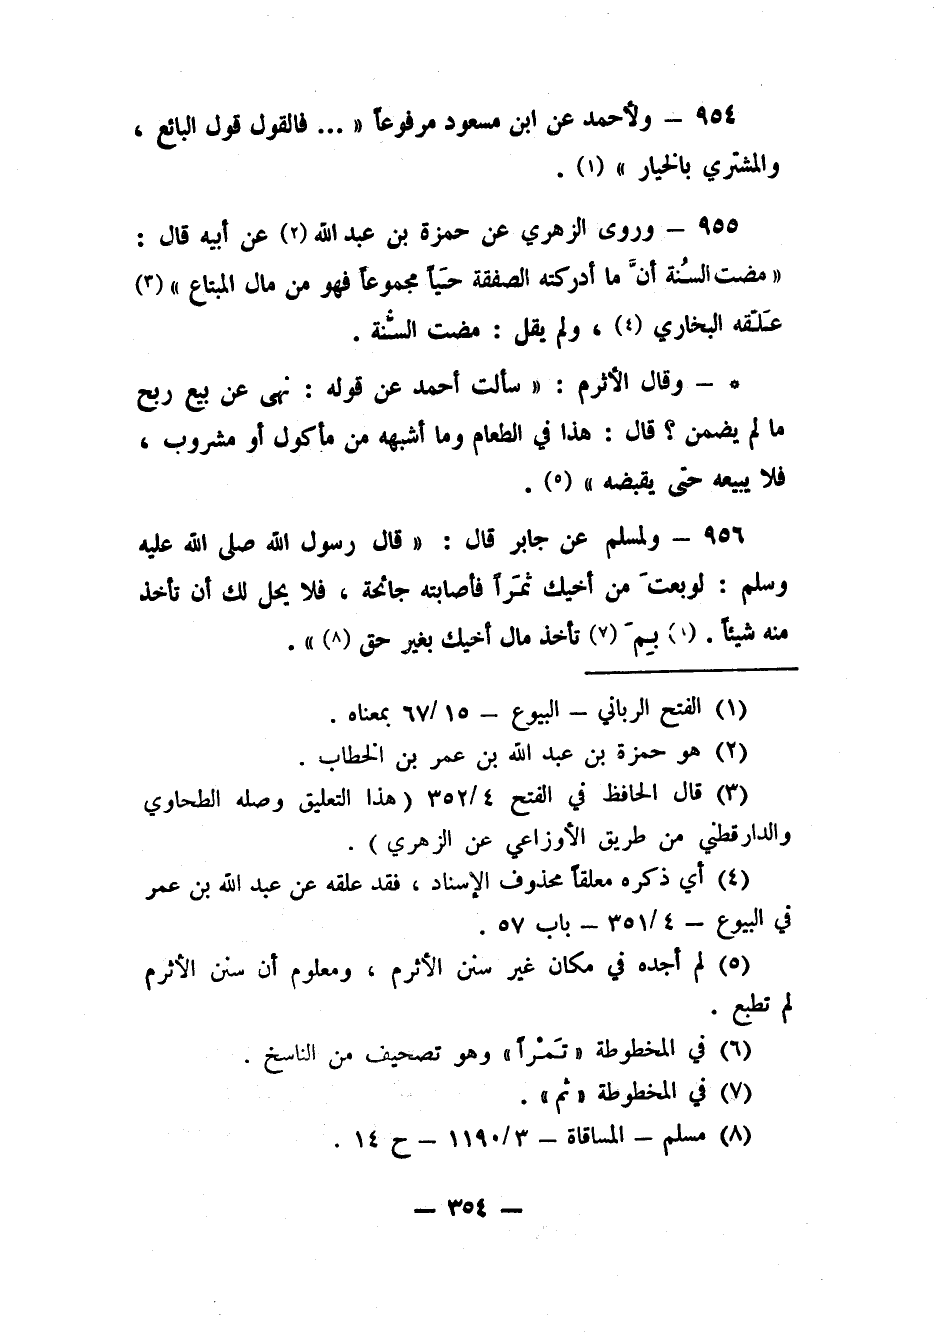 ٩٥٤ – ولأحمد عن ابن مسعود مرفوعاً « ... فالقول قول البائع ،
والمشتري بالخيار » (١) .
٩٥٥ – وروى الزهري عن حمزة بن عبد الله (٢) عن أبيه قال :
« مضت السُنة أنَّ ما أدركته الصفقة حَيّاً مجموعاً فهو من مال المبتاع » (٣)
عَلّقه البخاري (٤) ، ولم يقل : مضت السُّنة .
* – وقال الأثرم : « سألت أحمد عن قوله : نهى عن بيع ربح
ما لم يضمن ؟ قال : هذا في الطعام وما أشبهه من مأكول أو مشروب ،
فلا يبيعه حتى يقبضه » (٥) .
٩٥٦ – ولمسلم عن جابر قال : « قال رسول الله صلى الله عليه
وسلم : لو بعتَ من أخيك ثمَراً فأصابته جائحة ، فلا يحل لك أن تأخذ
منه شيئاً . (٦) بِمَ (٧) تأخذ مال أخيك بغير حق (٨) » .
(١) الفتح الرباني – البيوع – ٦٧/١٥ بمعناه .
(٢) هو حمزة بن عبد الله بن عمر بن الخطاب .
(٣) قال الحافظ في الفتح ٣٥٢/٤ ( هذا التعليق وصله الطحاوي
والدارقطني من طريق الأوزاعي عن الزهري ) .
(٤) أي ذكره معلقاً محذوف الإسناد ، فقد علقه عن عبد الله بن عمر
في البيوع – ٣٥١/٤ – باب ٥٧ .
(٥) لم أجده في مكان غير سنن الأثرم ، ومعلوم أن سنن الأثرم
لم تطبع .
(٦) في المخطوطة « تَمْراً » وهو تصحيف من الناسخ .
(٧) في المخطوطة « ثم » .
(٨) مسلم – المساقاة – ١١٩٠/٣ – ح ١٤ .
– ٣٥٤ –